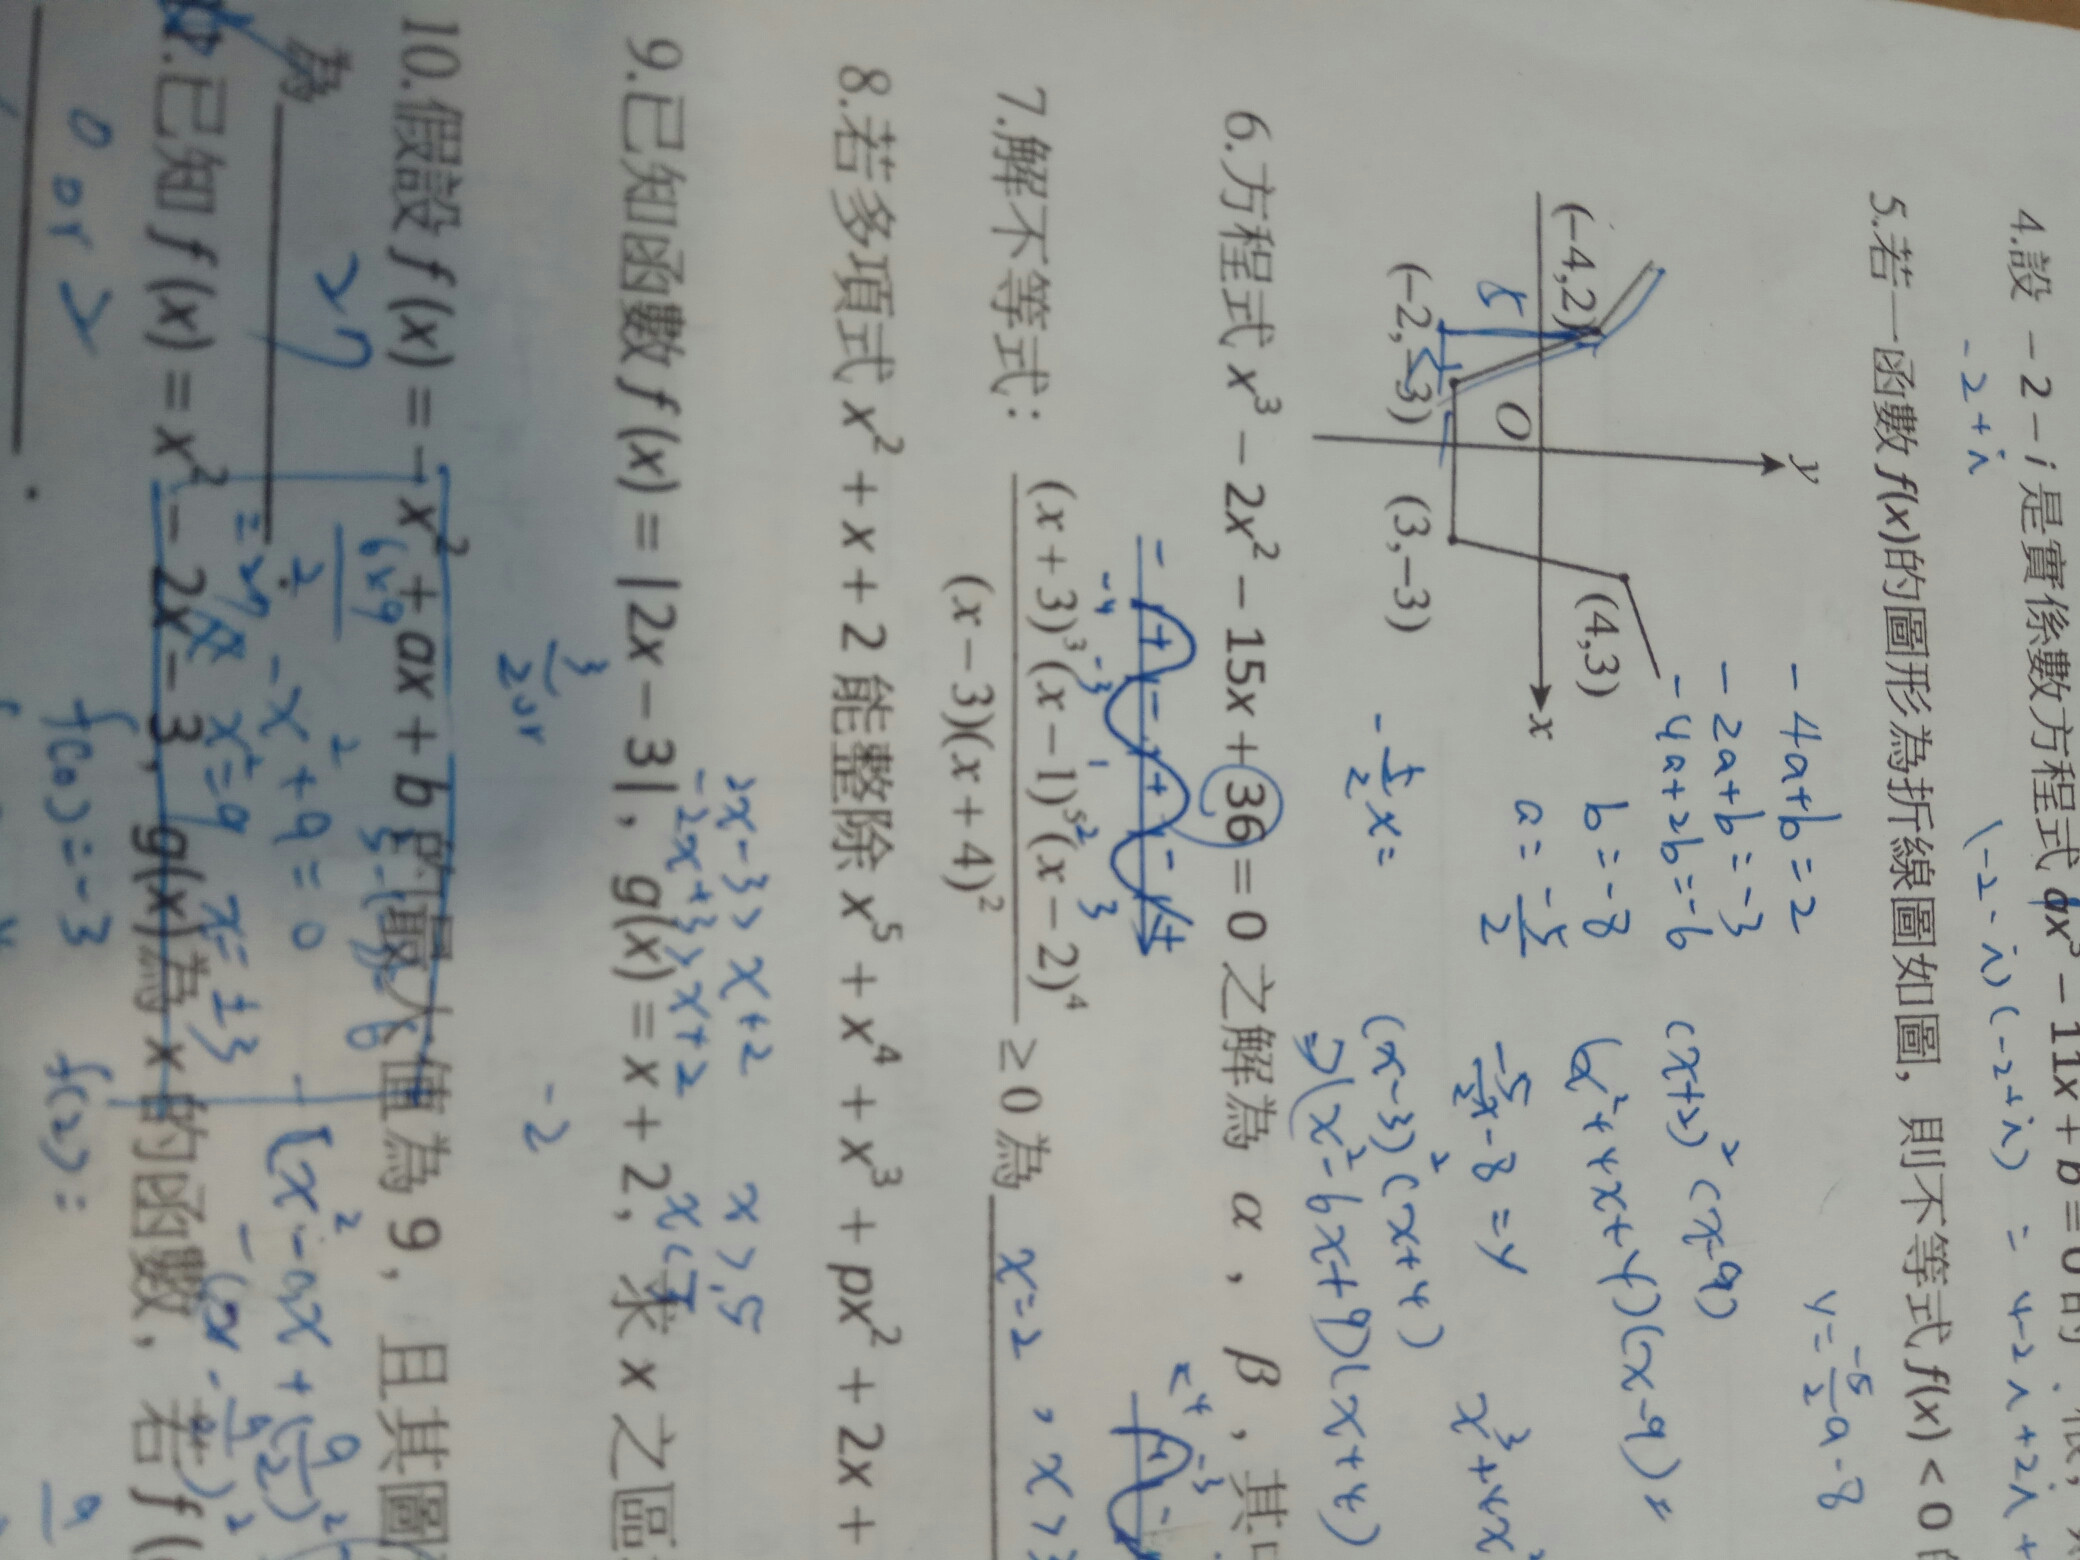 4.設 −2−i 是實係數方程式 ax³−11x+b=0的
-2+i
(-2-i)(-2+i) = 4-2i+2i+
5.若一函數f(x)的圖形為折線圖如圖,則不等式f(x)<0
y
(−4,2)
(−2,−3)
O
(3,−3)
(4,3)
x
5
-4a+b=2
-2a+b=-3
-4a+2b=-6
b=-8
a=-5/2
y=-5/2a-8
(x+2)²(x-9)
(x²+4x+4)(x-9)=
-5/2x-8=y
x³+4x²
-1/2x=
(x-3)²(x+4)
=>(x²-6x+9)(x+4)
6.方程式 x³−2x²−15x+36=0 之解為 α,β,其中
- + - + - +
-4 -3 1 2 3
-4 -3
7.解不等式: (x+3)³(x−1)⁵(x−2)⁴ / (x−3)(x+4)² ≥0 為
x=2 , x>
8.若多項式 x²+x+2 能整除 x⁵+x⁴+x³+px²+2x+
2x-3>x+2 x>5
-2x+3>x+2 x<
9.已知函數 f(x)=|2x−3|,g(x)=x+2,求 x 之區
3/2 or
-2
10.假設 f(x)=−x²+ax+b 的最大值為 9,且其圖
為
-x²+9=0
x²=9 x=±3
-[x²-ax+
.已知 f(x)=x²−2x−3,g(x)為 x 的函數,若 f(
0 or 2
f(0)=-3 f(2)=
.